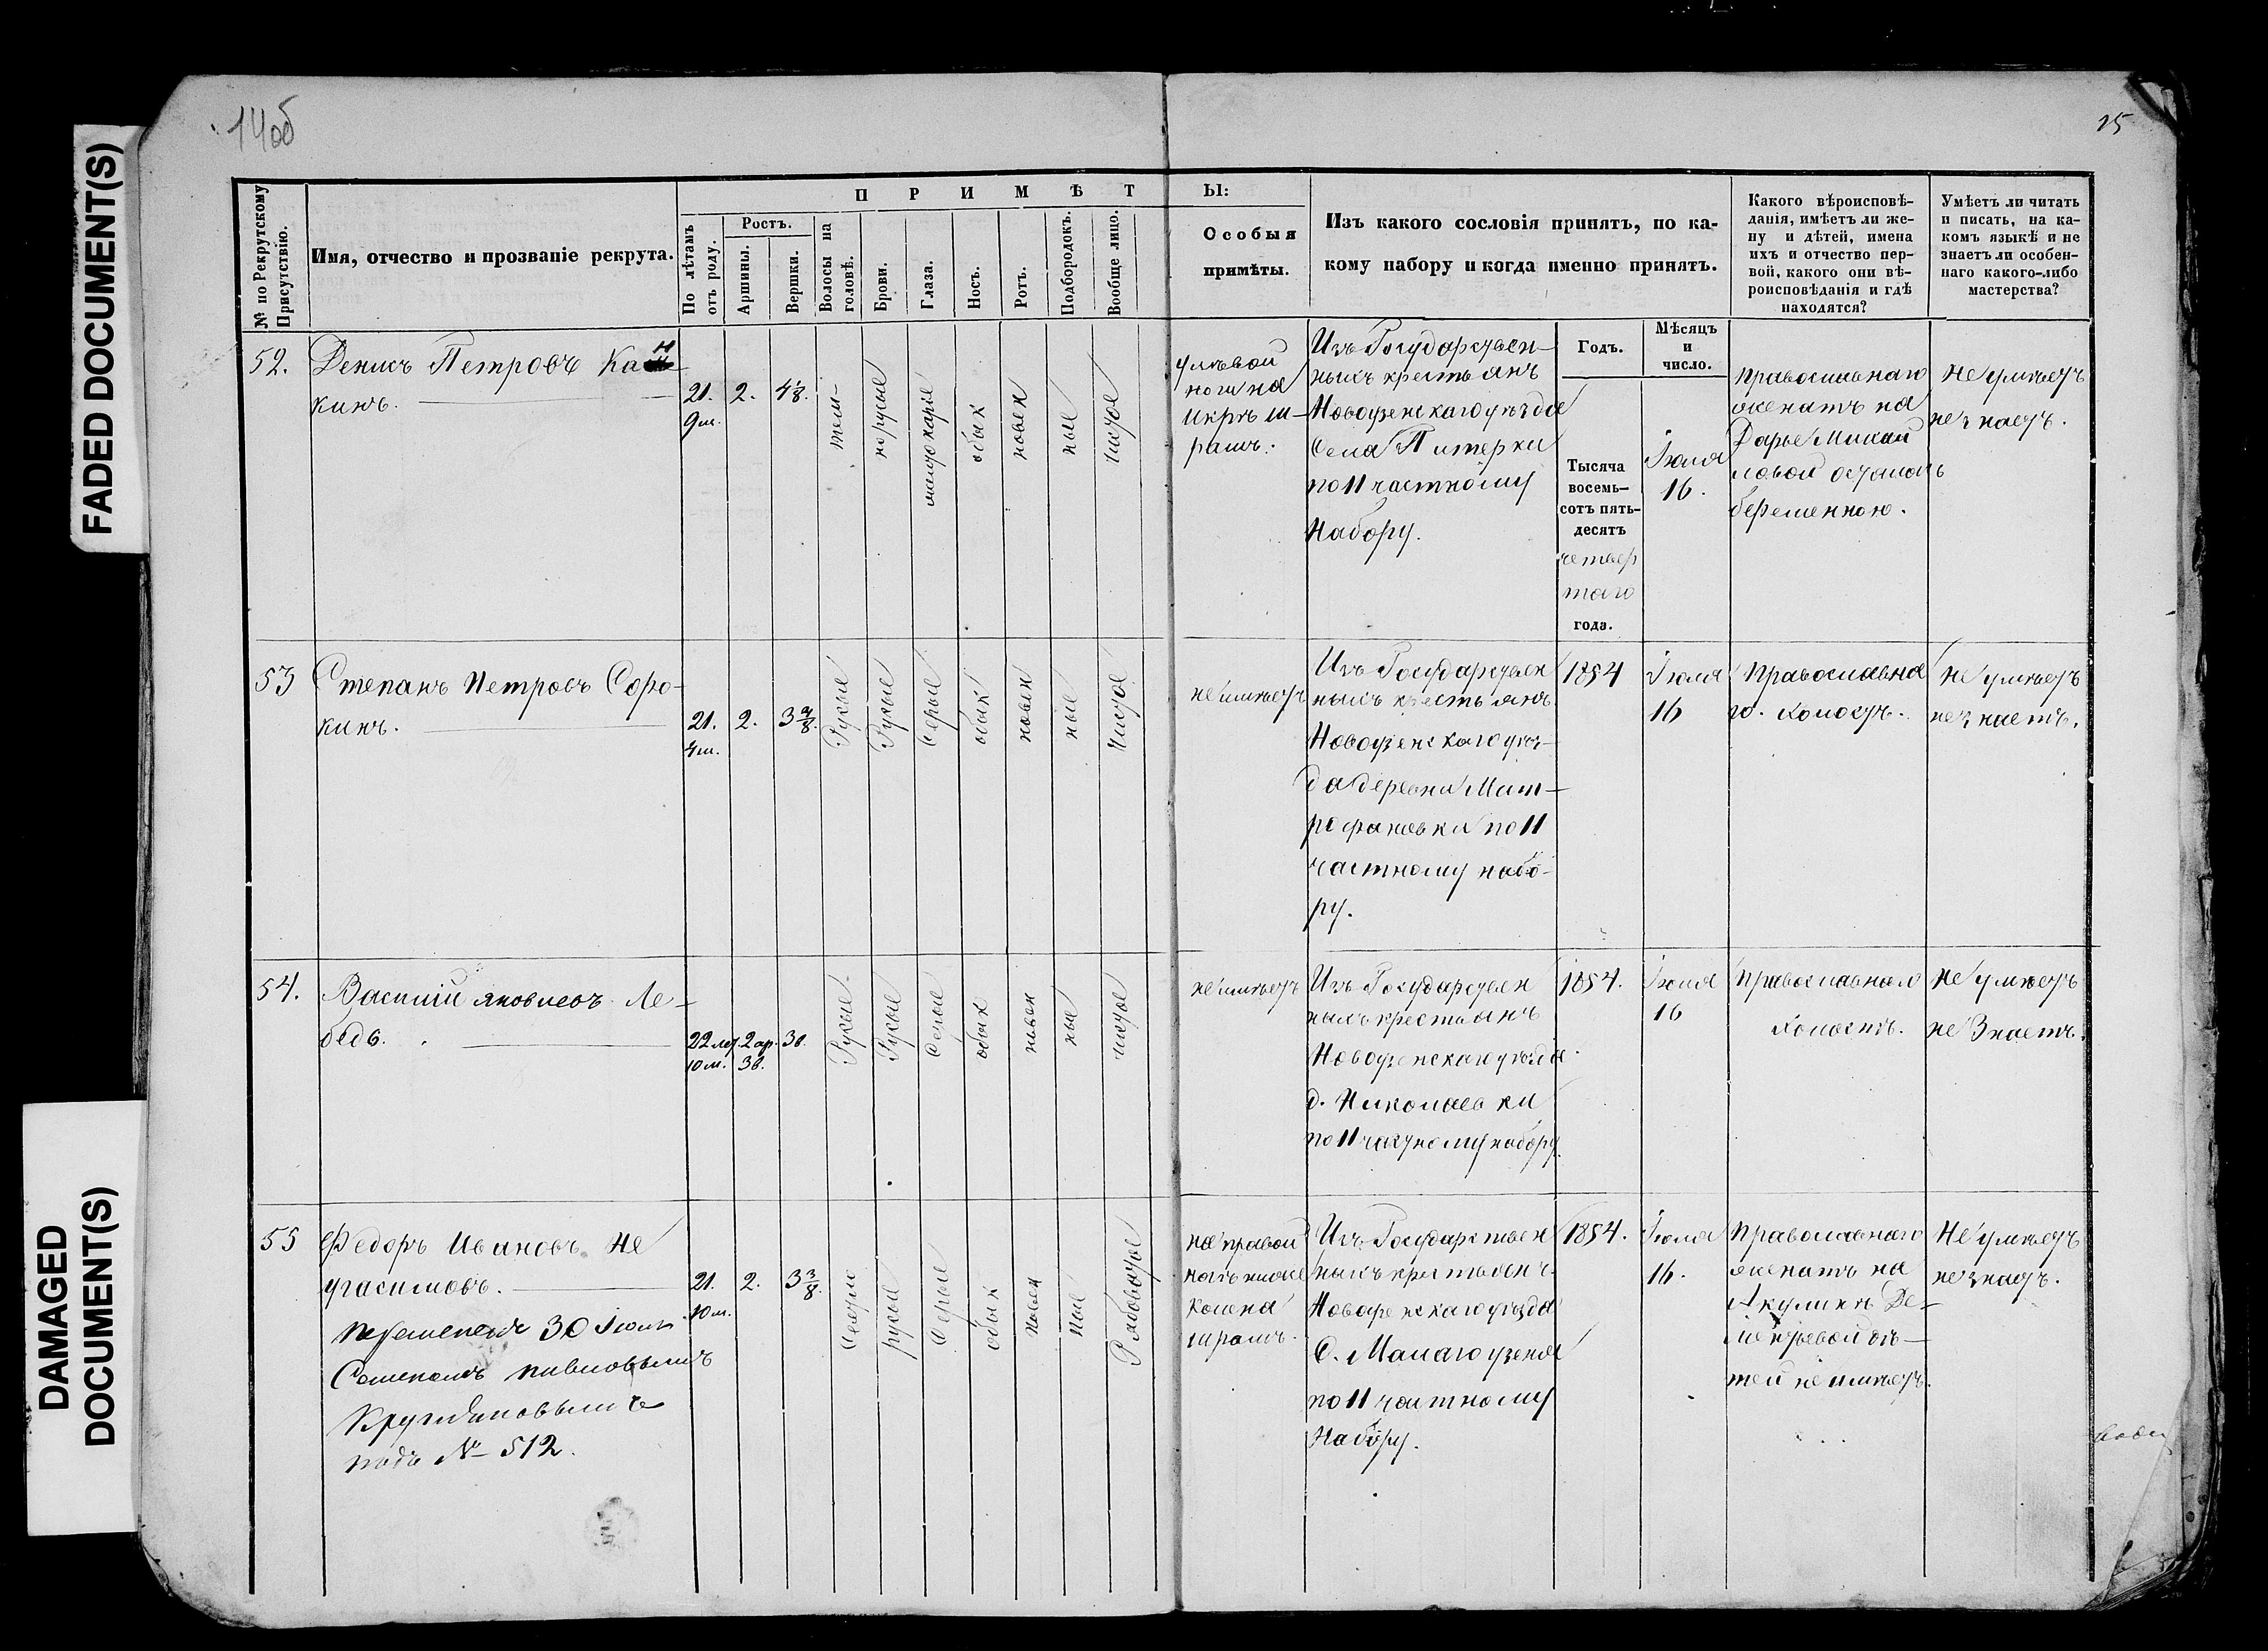 FADED DOCUMENT(S)
DAMAGED
DOCUMENT(S)
14об
15
№ по Рекрутскому
Присутствію.
Имя, отчество и прозваніе рекрута.
ПРИМѢТЫ:
По лѣтамъ
отъ роду.
Ростъ.
Аршины.
Вершки.
Волосы на
головѣ.
Брови.
Глаза.
Носъ.
Ротъ.
Подбородокъ.
Вообще лицо.
Особыя
примѣты.
Изъ какого сословія принятъ, по ка-
кому набору и когда именно принятъ.
Какого вѣроисповѣ-
данія, имѣетъ ли же-
ну и дѣтей, имена
ихъ и отчество пер-
вой, какого они вѣ-
роисповѣданія и гдѣ
находятся?
Умѣетъ ли читать
и писать, на ка-
комъ языкѣ и не
знаетъ ли особен-
наго какого-либо
мастерства?
Годъ.
Мѣсяцъ
и
число.
52.
Денисъ Петровъ
кинъ.
21.
9м.
2.
4/8.
темн-
русые
обык
новен
ные
чистое
у лѣвой
ноги на
икрѣ ш-
рамъ.
Изъ Государствен-
ныхъ крестьянъ
Новоузенскаго уѣзда
Села Питерки
по 11 частному
Набору.
Тысяча
восемь-
сотъ пять-
десятъ
четвер
таго
года.
Іюля
16.
Православнаго
женатъ на
Дарье Михай
ловой осталась
беременною.
Не умѣетъ
не знаетъ.
53
Степанъ Петровъ Соро-
кинъ.
21.
4м.
2.
3 /8.
Русые
Русые
Серые
обык
новен
ные
чистое
не имѣетъ
Изъ Государствен
ныхъ крестьянъ
Новоузенскаго уѣз-
да деревни Мит-
рофановки по 11
частному набо-
ру.
1854
Іюля
16
Православна
го. холостъ.
Не умѣетъ
не знаетъ.
54.
Василій Яковлевъ Ле-
бедь.
22 лет.
10 м.
2 ар.
3в.
3в.
Русые.
Русые
Серые
обык
новен
ные
чистое
не имѣетъ
Изъ Государствен
ныхъ крестьянъ
Новоузенскаго уѣзда
д. Николаевки
по 11 частному набору.
1854.
Іюля
16
Православнаго
холостъ.
Не умѣетъ
не Знаетъ.
55
Федоръ Ивановъ Не
угасимовъ.
30 Іюля
Семеномъ
подъ № 512.
21.
10 м.
2.
3 3/8.
русые
Серые
обык
новен
ные
Рябоватое
на правой
ногѣ ниже
колена
шрамъ.
Изъ Государствен
ныхъ крестьянъ
Новоузенскаго уѣзда
С. Малаго узеня
по 11 частному
Набору.
1854.
Іюля
16.
Православнаго
женатъ на
Акулинѣ Де-
ментьевой дѣ-
тей не имѣетъ.
Не умѣетъ
не знаетъ.